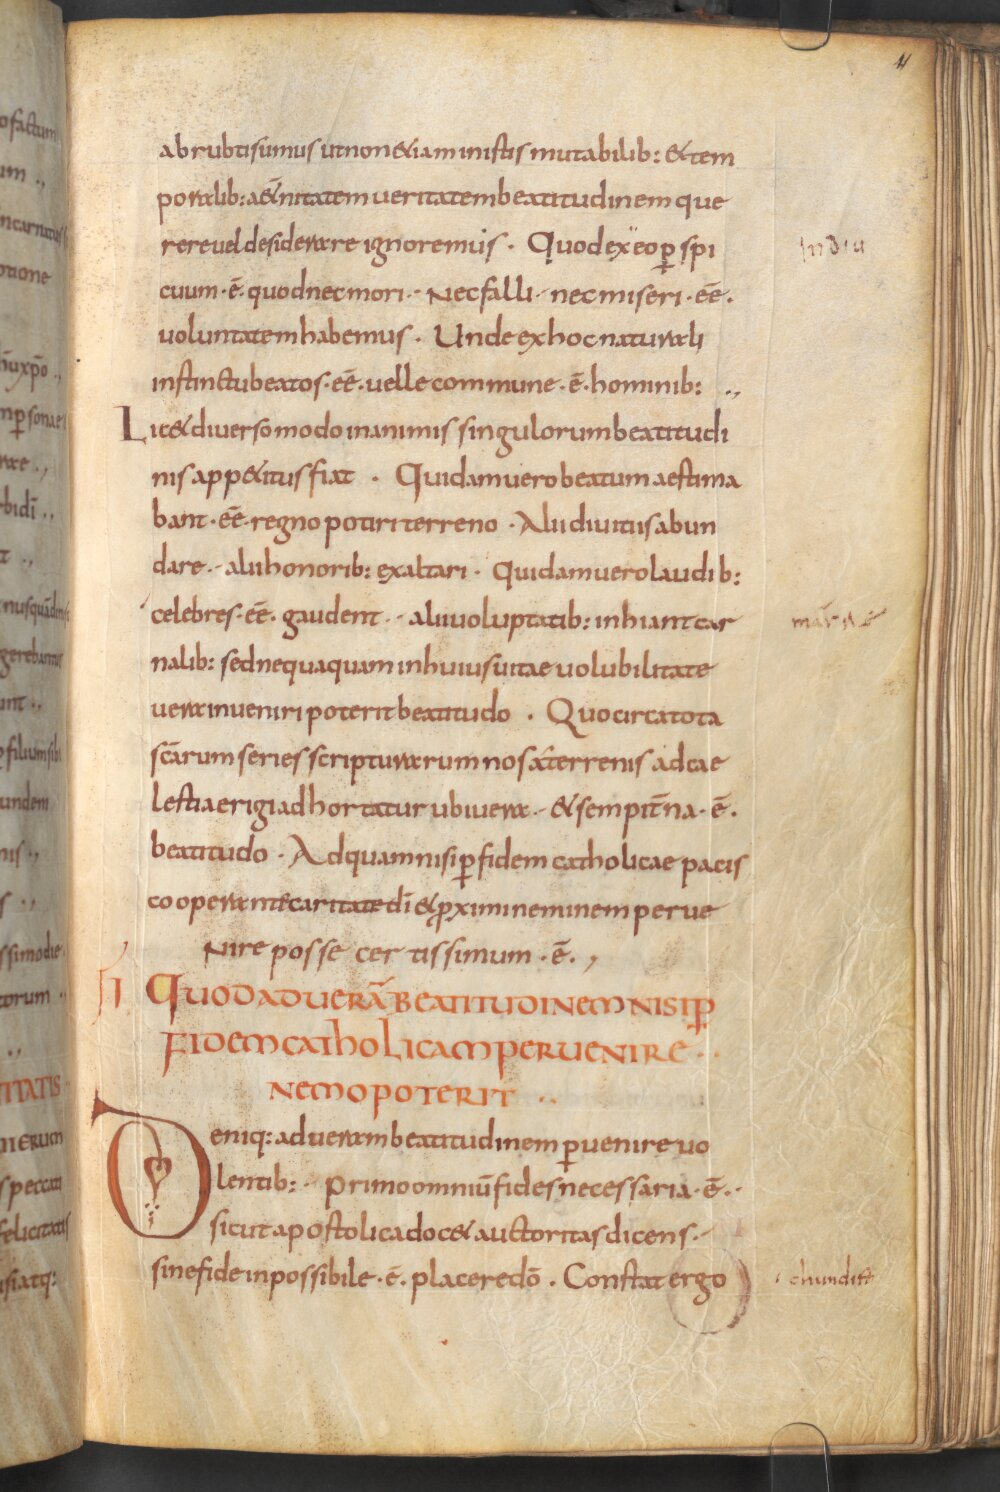 4
abrubti sumus ut non &iam in istis mutabilib: & tem
poralib: aet̄nitatem veritatem beatitudinem que
rere vel desiderare ignoremus · Quod ex eo p̱ spi
cuum · ē · quod nec mori · Nec falli · nec miseri · eē ·
voluntatem habemus · Unde ex hoc naturali
instinctu beatos · eē · velle commune · ē · hominib: ··,
Lic& diverso modo in animis singulorum beatitudi
nis app&itus fiat · Quidam vero beatum aestima
bant · eē · regno potiri terreno · Alii divitiis abun
dare · alii honorib: exaltari · Quidam vero laudib:
celebres · eē · gaudent · alii voluptatib: inhiant car
nalib: sed nequaquam in huius vitae volubilitate
vera inveniri poterit beatitudo · Quocirca tota
sc̄arum series scripturarum nos a terrenis ad cae
lestia erigi adhortatur ubi vera · & sempit̄na · ē ·
beatitudo · Ad quam nisi p̱ fidem catholicae pacis
cooperante caritate dī & p̱roximi neminem perve
Nire posse certissimum · ē · ,
II QUOD AD VERĀ BEATITUDINEM NISI P̱
FIDEM CATHOLICAM PERVENIRE ··
NEMO POTERIT ··
Deniq: ad veram beatitudinem p̱venire vo
lentib: · Primo omniū fides necessaria · ē ··
sicut apostolica doc& auctoritas dicens ·
sine fide inpossibile · ē · placere dō · Constat ergo